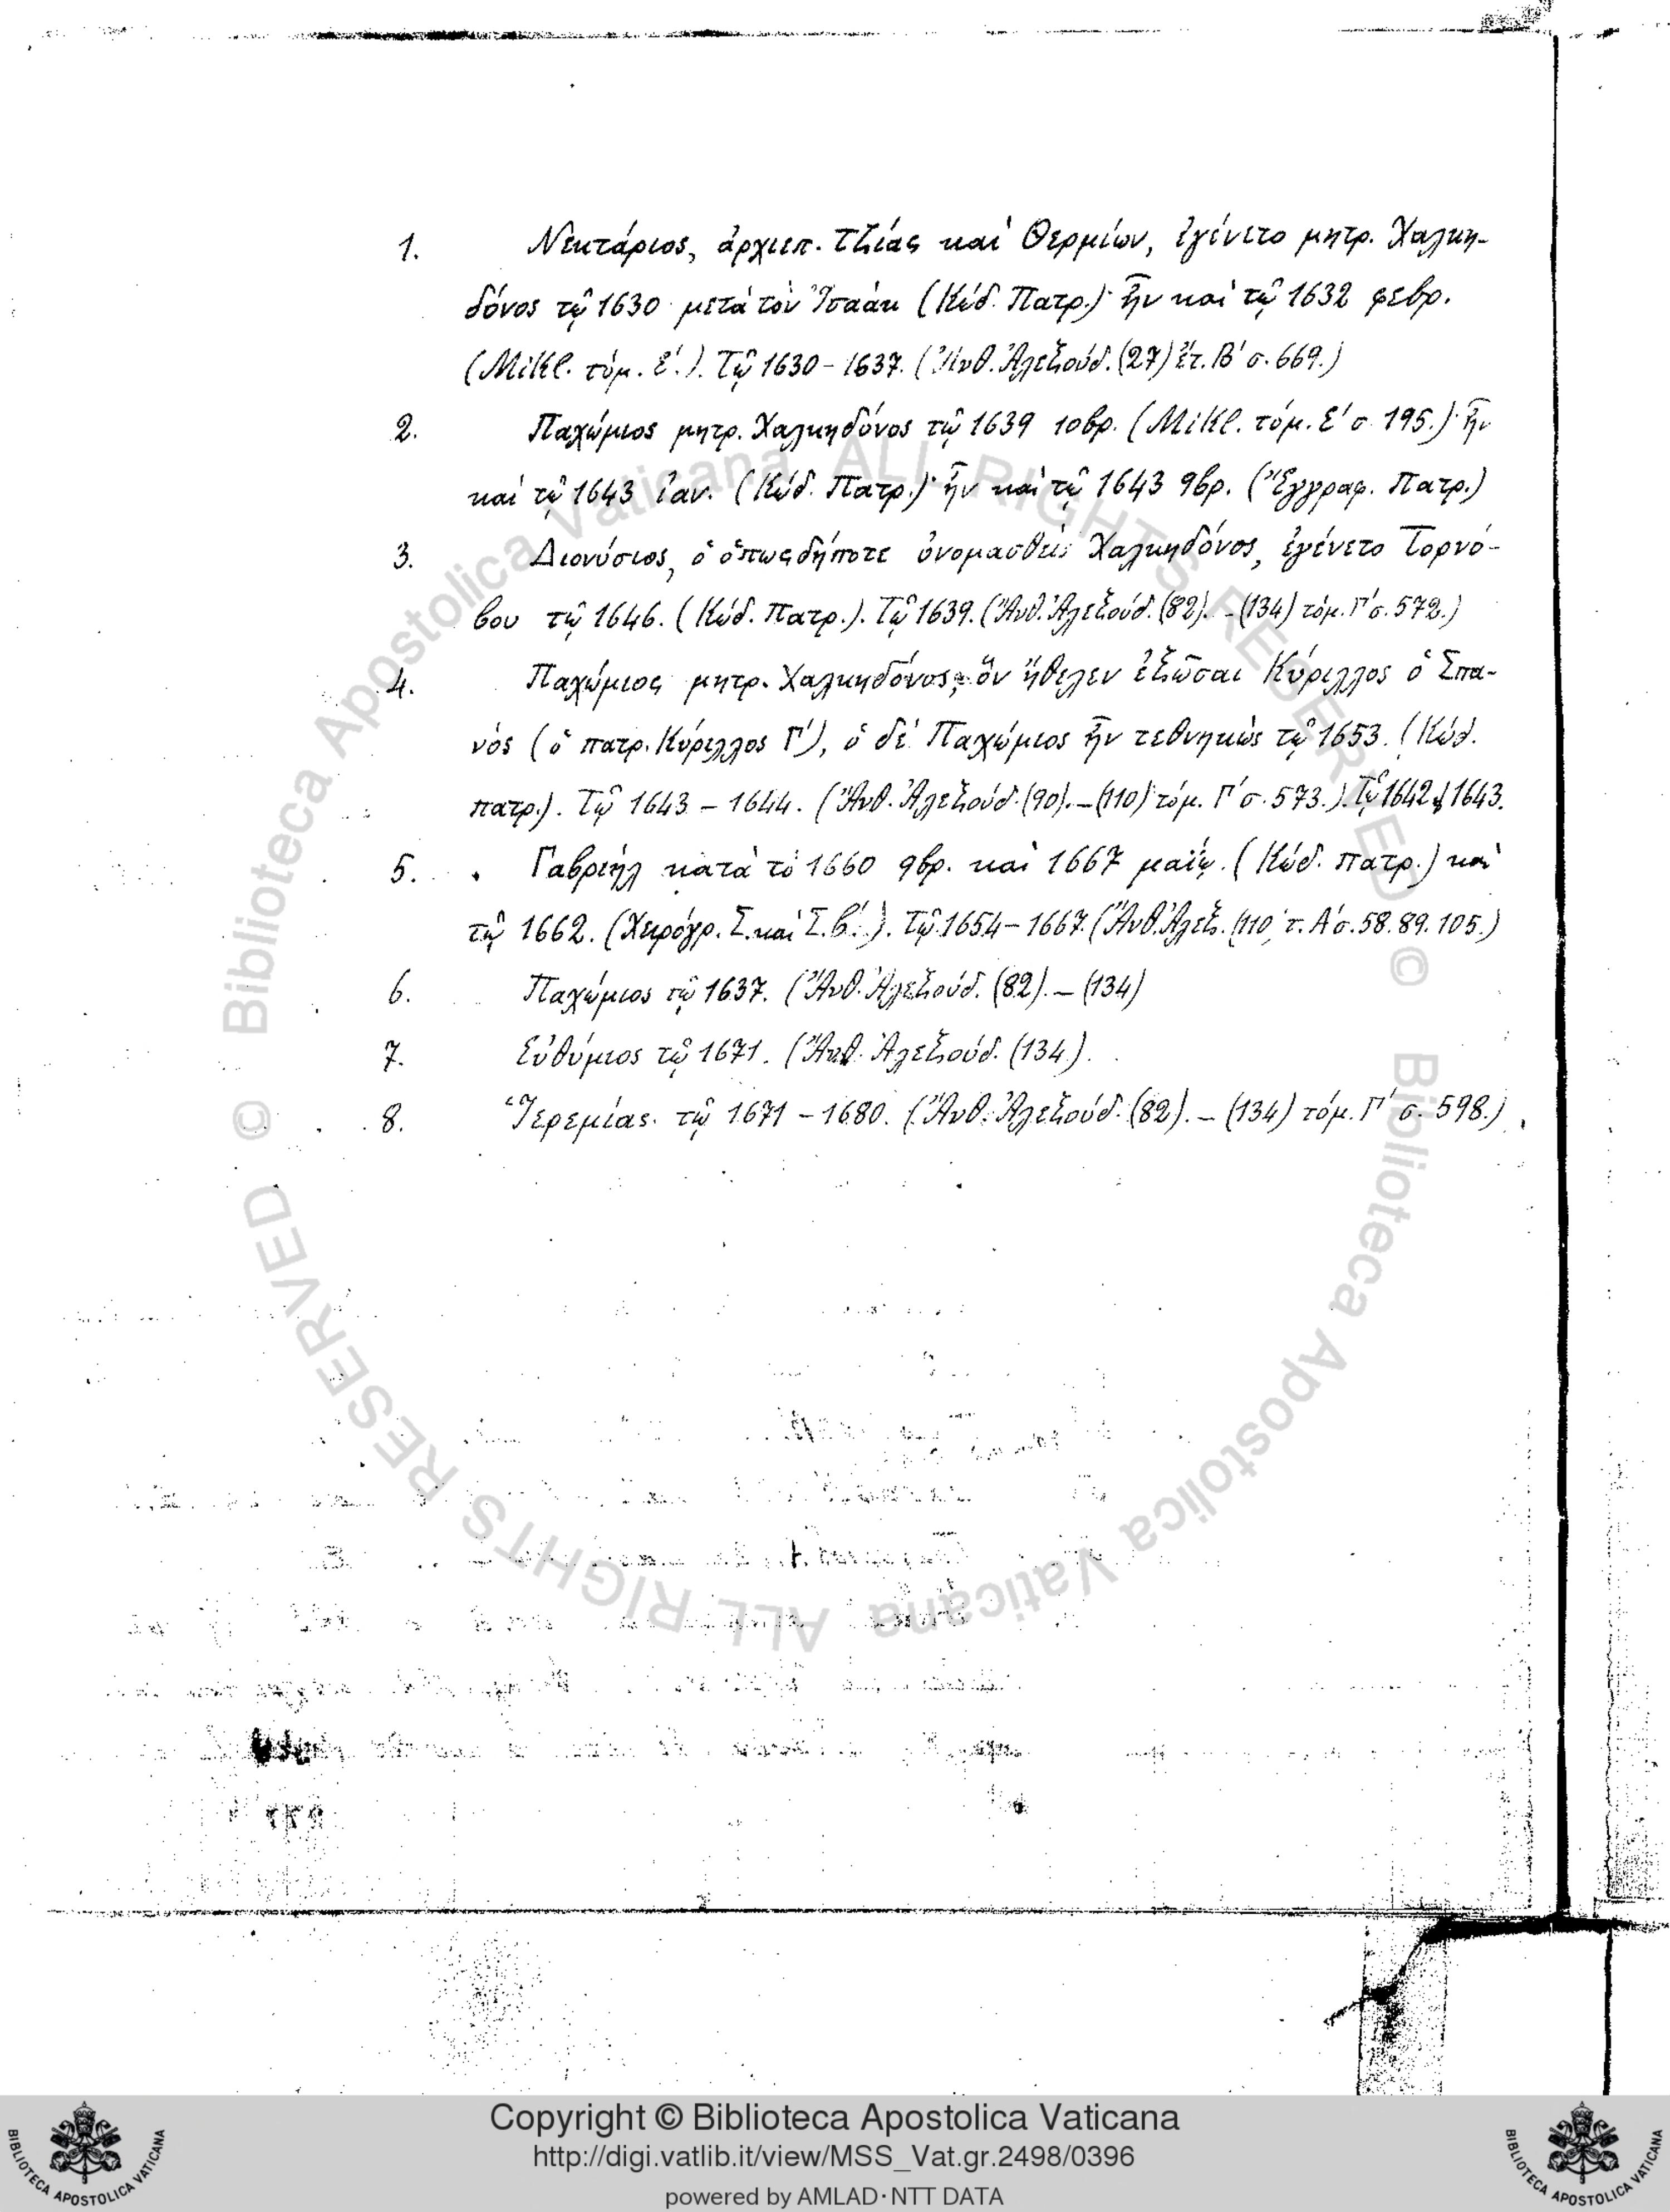 1. Νεκτάριος, ἀρχιεπ. Τζίας καὶ Θερμίων, ἐγένετο μητρ. Χαλκη-
δόνος τῷ 1630 μετὰ τὸν Ἰσαὰκ (Κώδ. Πατρ.)· ἦν καὶ τῷ 1632 φεβρ.
(Mikl. τόμ. Ε΄.). Τῷ 1630 - 1637. (Ἀνθ. Ἀλεξούδ. (27) ἔτ. Β΄ σ. 669.)
2. Παχώμιος μητρ. Χαλκηδόνος τῷ 1639 10βρ. (Mikl. τόμ. Ε΄ σ. 195.)· ἦν
καὶ τῷ 1643 ἰαν. (Κώδ. Πατρ.)· ἦν καὶ τῷ 1643 9βρ. (Ἔγγραφ. Πατρ.)
3. Διονύσιος, ὁ ὁπωςδήποτε ὀνομασθεὶς Χαλκηδόνος, ἐγένετο Τορνό-
βου τῷ 1646. (Κώδ. Πατρ.). Τῷ 1639. (Ἄνθ. Ἀλεξούδ. (82). - (134) τόμ. Γ΄ σ. 572.)
4. Παχώμιος μητρ. Χαλκηδόνος, ὃν ἤθελεν ἐξῶσαι Κύριλλος ὁ Σπα-
νὸς (ὁ πατρ. Κύριλλος Γ΄), ὁ δὲ Παχώμιος ἦν τεθνηκὼς τῷ 1653. (Κώδ.
πατρ.). Τῷ 1643 - 1644. (Ἄνθ. Ἀλεξούδ. (90). - (110) τόμ. Γ΄ σ. 573.). Τῷ 1642 1643.
5. Γαβριὴλ κατὰ τὸ 1660 9βρ. καὶ 1667 μαΐῳ. (Κώδ. πατρ.) καὶ
τῷ 1662. (Χειρόγρ. Σ. καὶ Σ. β΄.). Τῷ 1654 - 1667. (Ἄνθ. Ἀλεξ. (110, τ. Α΄ σ. 58. 89. 105.)
6. Παχώμιος τῷ 1637. (Ἄνθ. Ἀλεξούδ. (82). - (134)
7. Εὐθύμιος τῷ 1671. (Ἄνθ. Ἀλεξούδ. (134).
8. Ἱερεμίας. τῷ 1671 - 1680. (Ἄνθ. Ἀλεξούδ. (82). - (134) τόμ. Γ΄ σ. 598.)
© Biblioteca Apostolica Vaticana ALL RIGHTS RESERVED © Biblioteca Apostolica Vaticana ALL RIGHTS RESERVED
Copyright © Biblioteca Apostolica Vaticana
http://digi.vatlib.it/view/MSS_Vat.gr.2498/0396
powered by AMLAD·NTT DATA
BIBLIOTECA APOSTOLICA VATICANA
BIBLIOTECA APOSTOLICA VATICANA